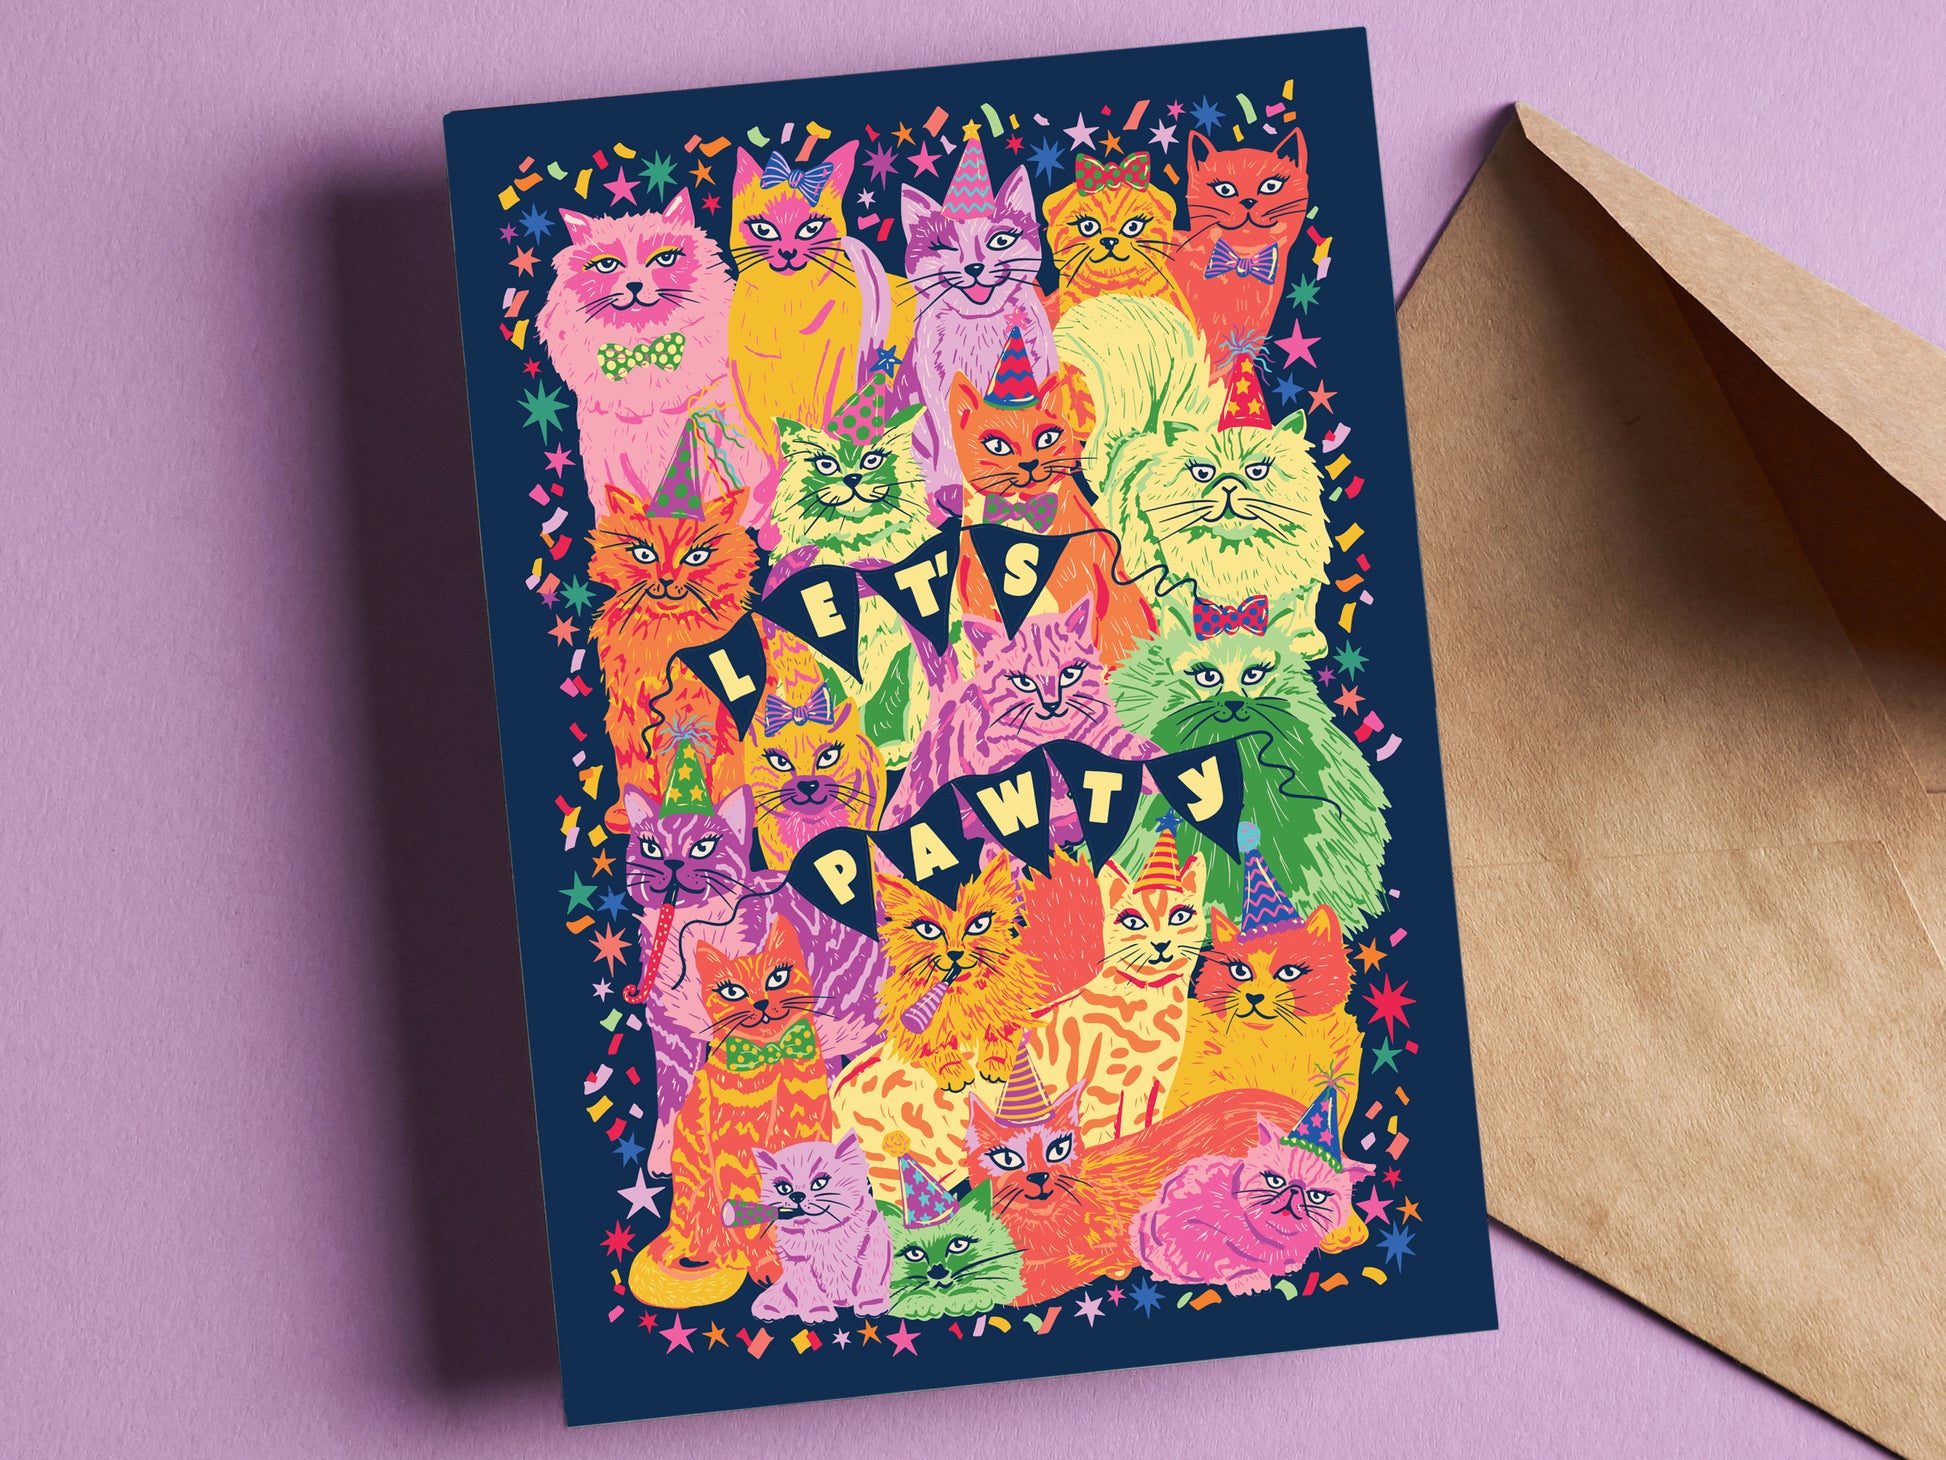 LET'S
PAWTY